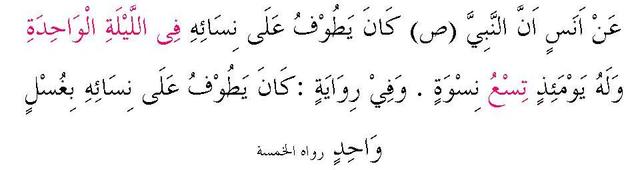 عَنْ اَنَسٍ اَنَّ النَّبِيَّ (ص) كَانَ يَطُوْفُ عَلَى نِسَائِهِ فِى اللَّيْلَةِ الْوَاحِدَةِ
وَلَهُ يَوْمَئِذٍ تِسْعُ نِسْوَةٍ . وَفِيْ رِوَايَةٍ :كَانَ يَطُوْفُ عَلَى نِسَائِهِ بِغُسْلٍ
وَاحِدٍ رواه الخمسة